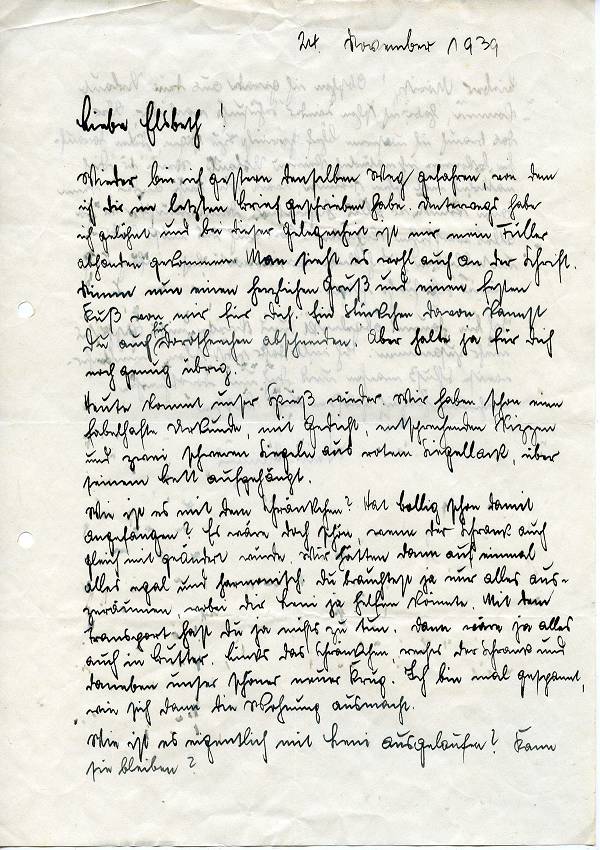 24. November 1939
Liebe Elsbeth!
Wieder bin ich gestern denselben Weg gefahren, von dem
ich dir im letzten Brief geschrieben habe. Unterwegs habe
ich gelöhnt und bei dieser Gelegenheit ist mir mein Füller
abhanden gekommen. Man sieht es wohl auch an der Schrift.
Nimm nun einen herzlichen Gruß und einen festen
Kuß von mir für Dich. Ein Stückchen davon kannst
Du auch für Dorotheechen abschneiden. Aber halte ja für Dich
noch genug übrig.
Heute kommt unser Spieß wieder. Wir haben schon eine
fabelhafte Urkunde, mit Gedicht, entsprechenden Skizzen
und zwei schweren Siegeln aus rotem Siegellack, über
seinem Bett aufgehängt.
Wie ist es mit dem Schränkchen? Hat Bellig schon damit
angefangen? Es wäre doch schön, wenn der Schrank auch
gleich mit geändert würde. Wir hätten dann auf einmal
alles egal und harmonisch. Du brauchtest ja nur alles aus-
zuräumen, wobei dir Leni ja helfen könnte. Mit dem
Transport hast Du ja nichts zu tun. Dann wäre ja alles
auch in Butter. Links das Schränkchen, rechts der Schrank und
daneben unser schöner neuer Krug. Ich bin mal gespannt,
wie sich dann die Wohnung ausmacht.
Wie ist es eigentlich mit Leni ausgelaufen? Kann
sie bleiben?